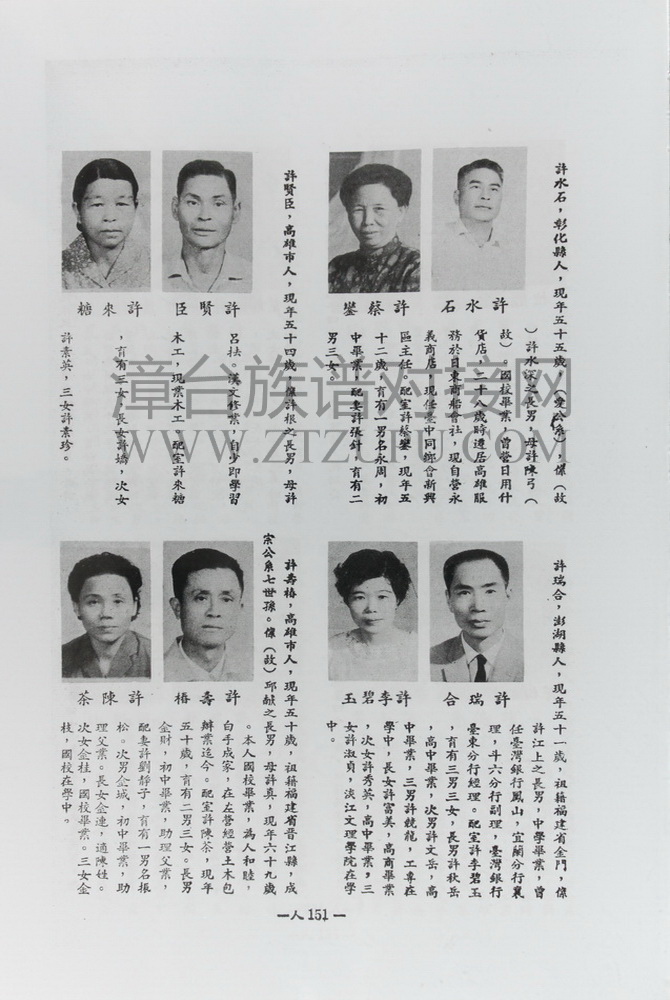 許水石，彰化縣人，現年五十五歲（愛公系）係（故
）許水深之長男，母許陳弓（
故）。國校畢業，曾營日用什
貨店，二十八歲時遷居高雄服
務於日東商船會社，現自營永
義商店，現任臺中同鄉會新興
區主任，配室許蔡鑾，現年五
十二歲，育有一男名永周，初
中畢業，配妻許張針，育有二
男三女。
許水石
許蔡鑾
許賢臣，高雄市人，現年五十四歲，係許根之長男，母許
呂扶。漢文修業，自少即學習
木工，現業木工。配室許來糖
，育有三女，長女許嬌，次女
許素英，三女許素珍。
許賢臣
許來糖
許瑞合，澎湖縣人，現年五十一歲，祖籍福建省金門，係
許江上之長男，中學畢業，曾
任臺灣銀行鳳山，宜蘭分行襄
理，斗六分行副理，臺灣銀行
臺東分行經理。配室許李碧玉
，育有三男三女，長男許秋岳
，高中畢業，次男許文岳，高
中畢業，三男許競龍，工專在
學中，長女許富美，高商畢業
，次女許秀英，高中畢業，三
女許淑貞，淡江文理學院在學
中。
許瑞合
許李碧玉
許壽椿，高雄市人，現年五十歲，祖籍福建省晋江縣，成
宗公系七世孫。係（故）邱献之長男，母許真，現年六十九歲
。本人國校畢業，為人和睦，
白手成家，在左營經營土木包
辦業迄今。配室許陳茶，現年
五十歲，育有二男三女。長男
金財，初中畢業，助理父業，
配妻許劉靜子，育有一男名振
松。次男金城，初中畢業，助
理父業。長女金連，適陳姓。
次女金桂，國校畢業。三女金
枝，國校在學中。
許壽椿
許陳茶
—人151—
漳台族谱对接网
WWW.ZTZUPU.COM